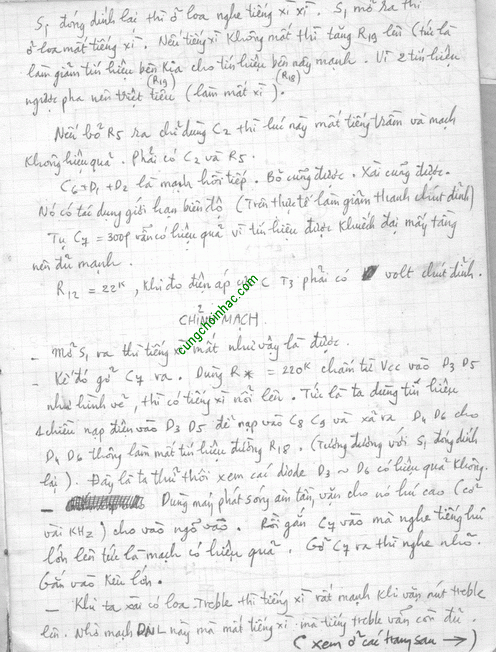 S₁ đóng dính lại thì ở loa nghe tiếng xì xì. S₁ mở ra thì
ở loa mất tiếng xì. Nếu tiếng xì không mất thì tăng R₁₉ lên (tức là
làm giảm tín hiệu bên kia cho tín hiệu bên này mạnh. Vì 2 tín hiệu
(R₁₉) (R₁₈)
ngược pha nên triệt tiêu (làm mất xì).
Nếu bỏ R₅ ra chỉ dùng C₂ thì lúc này mất tiếng trầm và mạch
không hiệu quả. Phải có C₂ và R₅.
C₆ + D₁ + D₂ là mạch hồi tiếp. Bỏ cũng được. Xài cũng được.
Nó có tác dụng giới hạn biên độ (Trên thực tế làm giảm thanh chút đỉnh)
Tụ C₇ = 300p vẫn có hiệu quả vì tín hiệu được khuếch đại mấy tầng
nên đủ mạnh.
R₁₂ = 22K, khi đo điện áp C T₃ phải có volt chút đỉnh.
CHỈNH MẠCH.
cungchoinhac.com
- Mở S₁ ra thì tiếng xì mất như vậy là được.
- Kế đó gỡ C₇ ra. Dùng R* = 220K chấm từ Vcc vào D₃ D₅
như hình vẽ, thì có tiếng xì nổi lên. Tức là ta dùng tín hiệu
1 chiều nạp điện vào D₃ D₅ để nạp vào C₈ C₉ và xả ra D₄ D₆ cho
D₄ D₆ thông làm mất tín hiệu đường R₁₈. (Tương đương với S₁ đóng dính
lại). Đây là ta thử thôi xem các diode D₃ ~ D₆ có hiệu quả không.
- Dùng máy phát sóng âm tần, vặn cho nó hú cao (cỡ
vài KHz) cho vào ngõ vào. Rồi gắn C₇ vào mà nghe tiếng hú
lớn lên tức là mạch có hiệu quả. Gỡ C₇ ra thì nghe nhỏ.
Gắn vào kêu lớn.
- Khi ta xài có loa Treble thì tiếng xì rất mạnh khi vặn nút treble
lên. Nhờ mạch DNL này mà mất tiếng xì mà tiếng treble vẫn còn đủ.
(xem ở các trang sau →)